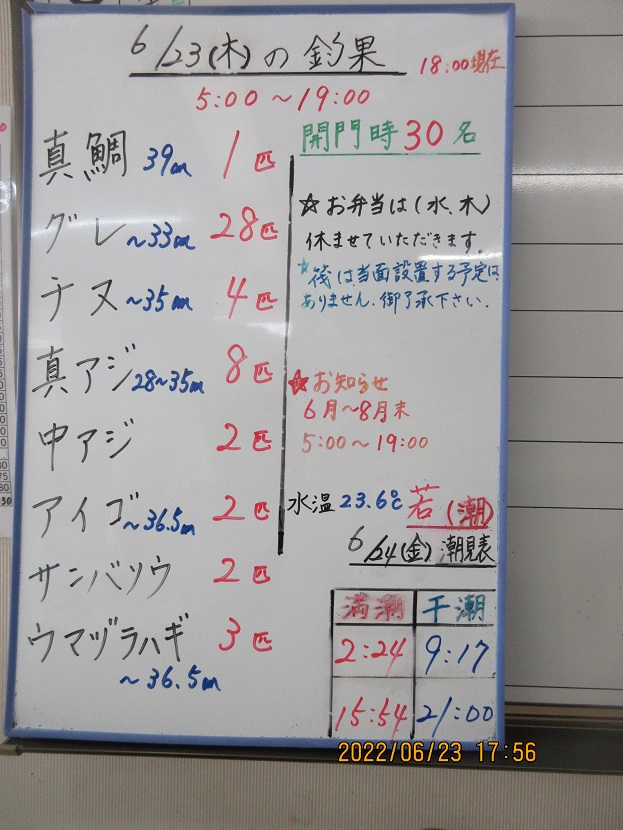 6/23(木)の釣果
18:00現在
5:00～19:00
真鯛 39cm 1匹
グレ ～33cm 28匹
チヌ ～35cm 4匹
真アジ 28～35cm 8匹
中アジ 2匹
アイゴ ～36.5cm 2匹
サンバソウ 2匹
ウマヅラハギ 3匹
～36.5cm
開門時30名
☆お弁当は(水、木)
休ませていただきます。
☆筏は当面設置する予定は
ありません。御了承下さい.
☆お知らせ
6月～8月末
5:00～19:00
水温 23.6℃ 若(潮)
6/24(金)潮見表
満潮 干潮
2:24 9:17
15:54 21:00
2022/06/23 17:56